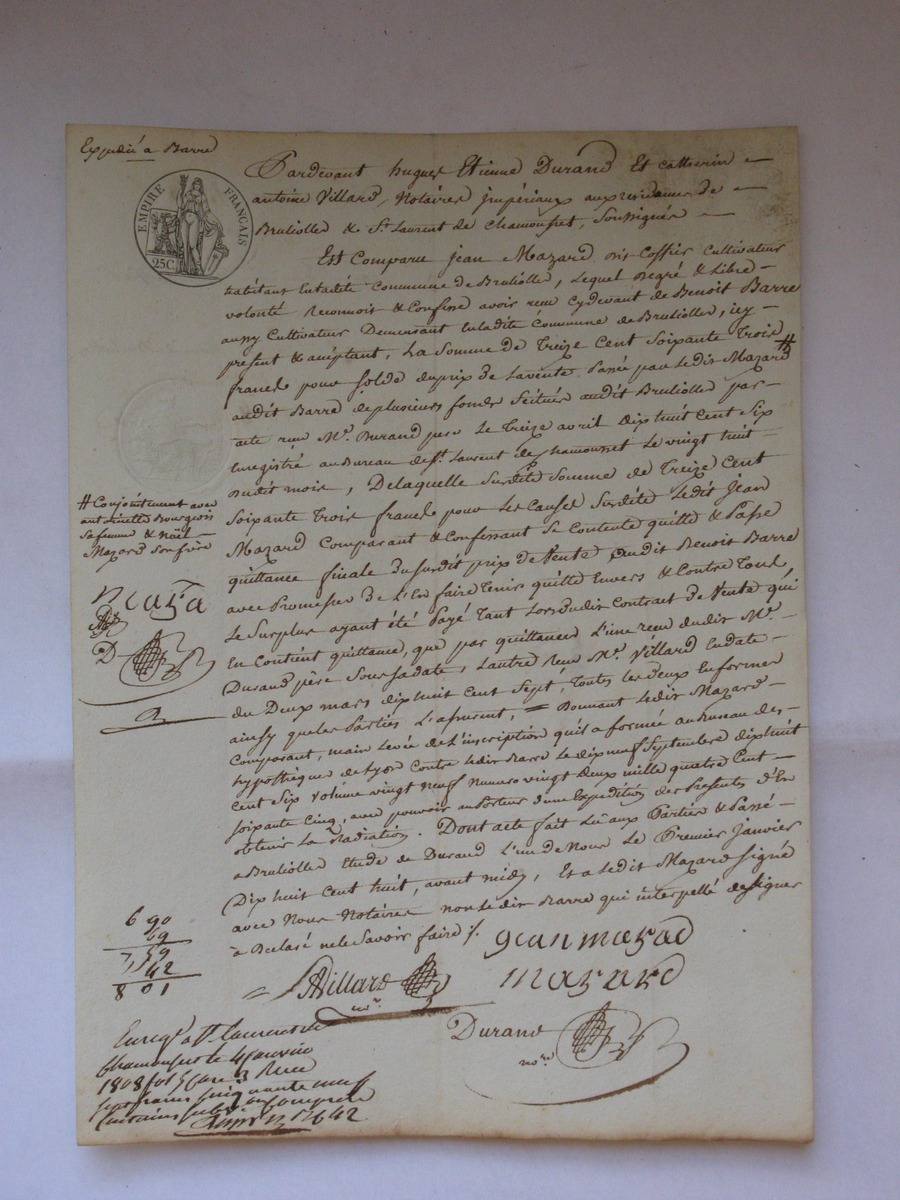 Expedié a Barre
EMPIRE FRANÇAIS
25C
Pardevant hugues Etienne Durand Et catherin
antoine Villard, Notaires jmpériaux aux residances de
Brullolle & St Laurent de Chamousset, Soussignés
Est Comparu jean Mazard dit Coffier Cultivateur
habitant Enladite Commune de Brullolle, Lequel degré & Libre
volonté Reconnois & Confesse avoir reçu cydevant de Benoit Barre
aussy Cultivateur Demeurant Enladite Commune de Brullolle, icy
present & acceptant, La Somme de Treize Cent Soixante Trois
francs pour Solde duprix de Lavente Passée par Ledit Mazard #
audit Barre deplusieurs fonds Scitués audit Brullolle par
acte reçu Me. Durand pere Le Treize avril dix huit Cent Six
Enregistré auBureau de St. Laurent de Chamousset Le vingt huit
dudit mois, Delaquelle Surdite Somme de Treize Cent
Soixante Trois francs pour Les Causes Surdites Ledit Jean
Mazard Comparant & Confessant Se Contente quitte & Passe
quittance finale du Surdit prix de Vente audit Benoit Barre
avec Promesse de L'En faire Tenir quitte Envers & Contre Tous,
Le Surplus ayant été Payé Tant Lors dudit Contract de Vente qui
En Contient quittance, que par quittances L'une reçu dudit Me.
Durand père Sous Sa date, Lautre Reçu Me. Villard Endate
du Deux mars dix huit Cent Sept, Toutes les deux En formes
ainsy que les Parties L'assurent, = Donnant Ledit Mazard
Comparant, main Levée de L'inscription qu'il a formée au Bureau des
hypothèques de Lyon Contre Ledit Barre Le dix neuf Septembre dix huit
Cent Six Volume vingt neuf Numero vingt deux mille quatre Cent
Soixante Cinq, avec pouvoir au Porteur d'une Expédition des Présentes d'En
obtenir La Radiation. Dont acte fait Lu aux Parties & Passé
a Brullolle Etude de Durand L'un de Nous Le Premier Janvier
Dix huit Cent huit, avant midy, Et a Ledit Mazard Signé
avec Nous Notaires non Ledit Barre qui interpellé deSigner
à Déclaré ne le Savoir faire /.
# Conjointement avec
antoinette Bourgeois
Sa femme & Noël
Mazard Son frère
maza
D
jean mazard
mazard
Villard
nre.
Durand
nore
6 90
69
7,59
42
8 01
Enregé a St Laurent de
Chamousset le 4 janvier
1808 fol 5 Case 3 Reçu
Sept francs Cinquante neuf
Centimes Subvon Comprise